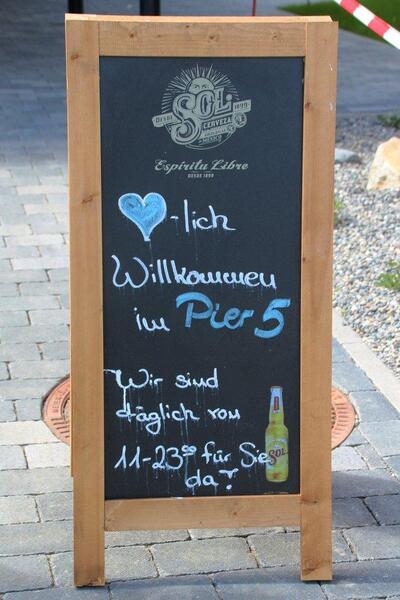 DESDE 1899
SOL
CERVEZA
MEXICO
Espíritu Libre
DESDE 1899
-lich
Willkommen
im Pier 5
Wir sind
täglich von
11-23⁰⁰ für Sie
da!
SOL